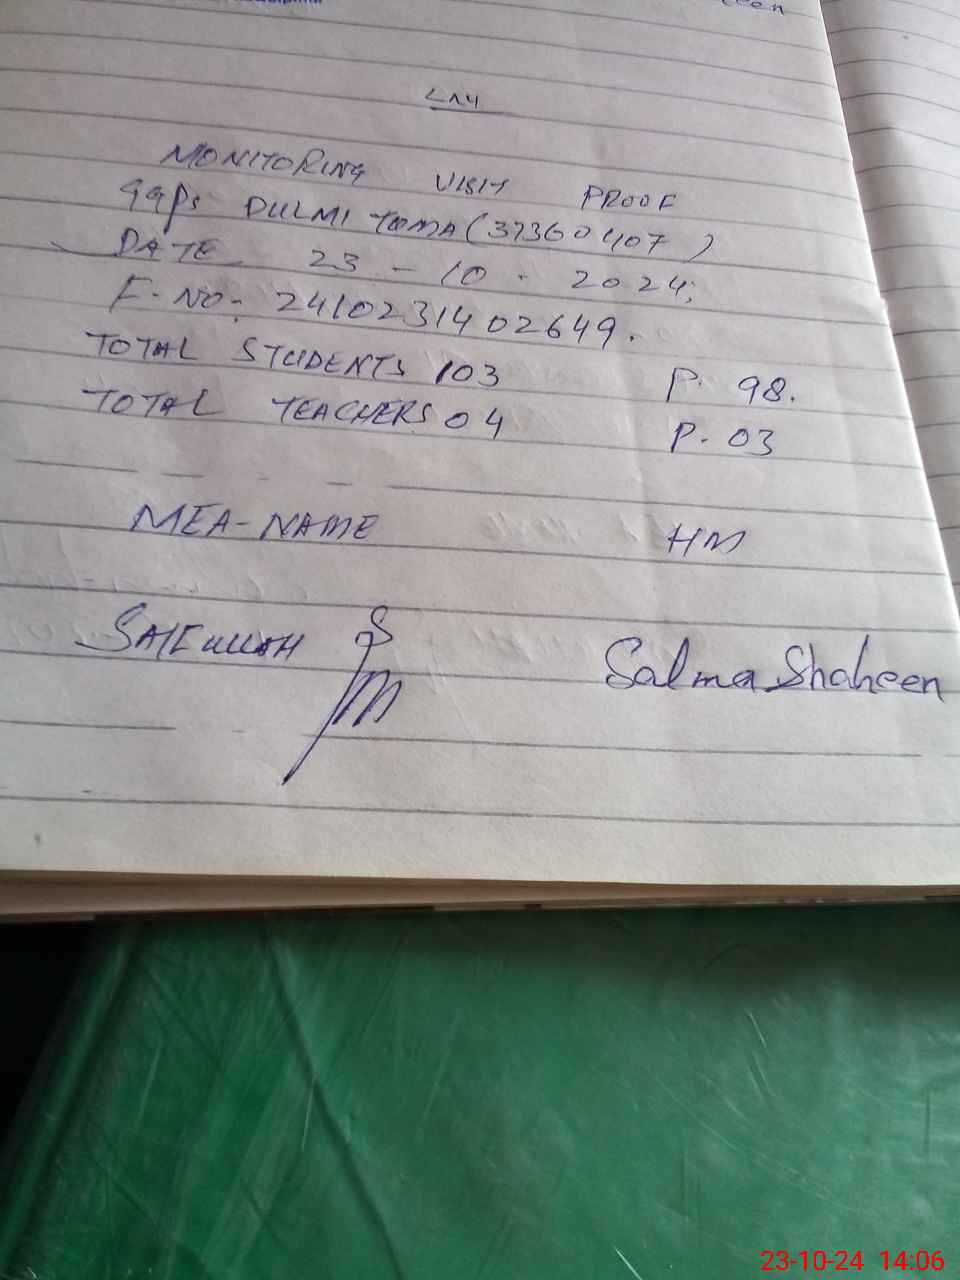 een
MONITORING VISIT PROOF
GGPS DULMI TOMA (37360407)
DATE 23 - 10 - 2024;
F-NO: 2410231402649.
TOTAL STUDENTS 103 P. 98.
TOTAL TEACHERS 04 P. 03
MEA-NAME HM
SAIFULLAH Salma Shaheen
23-10-24 14:06